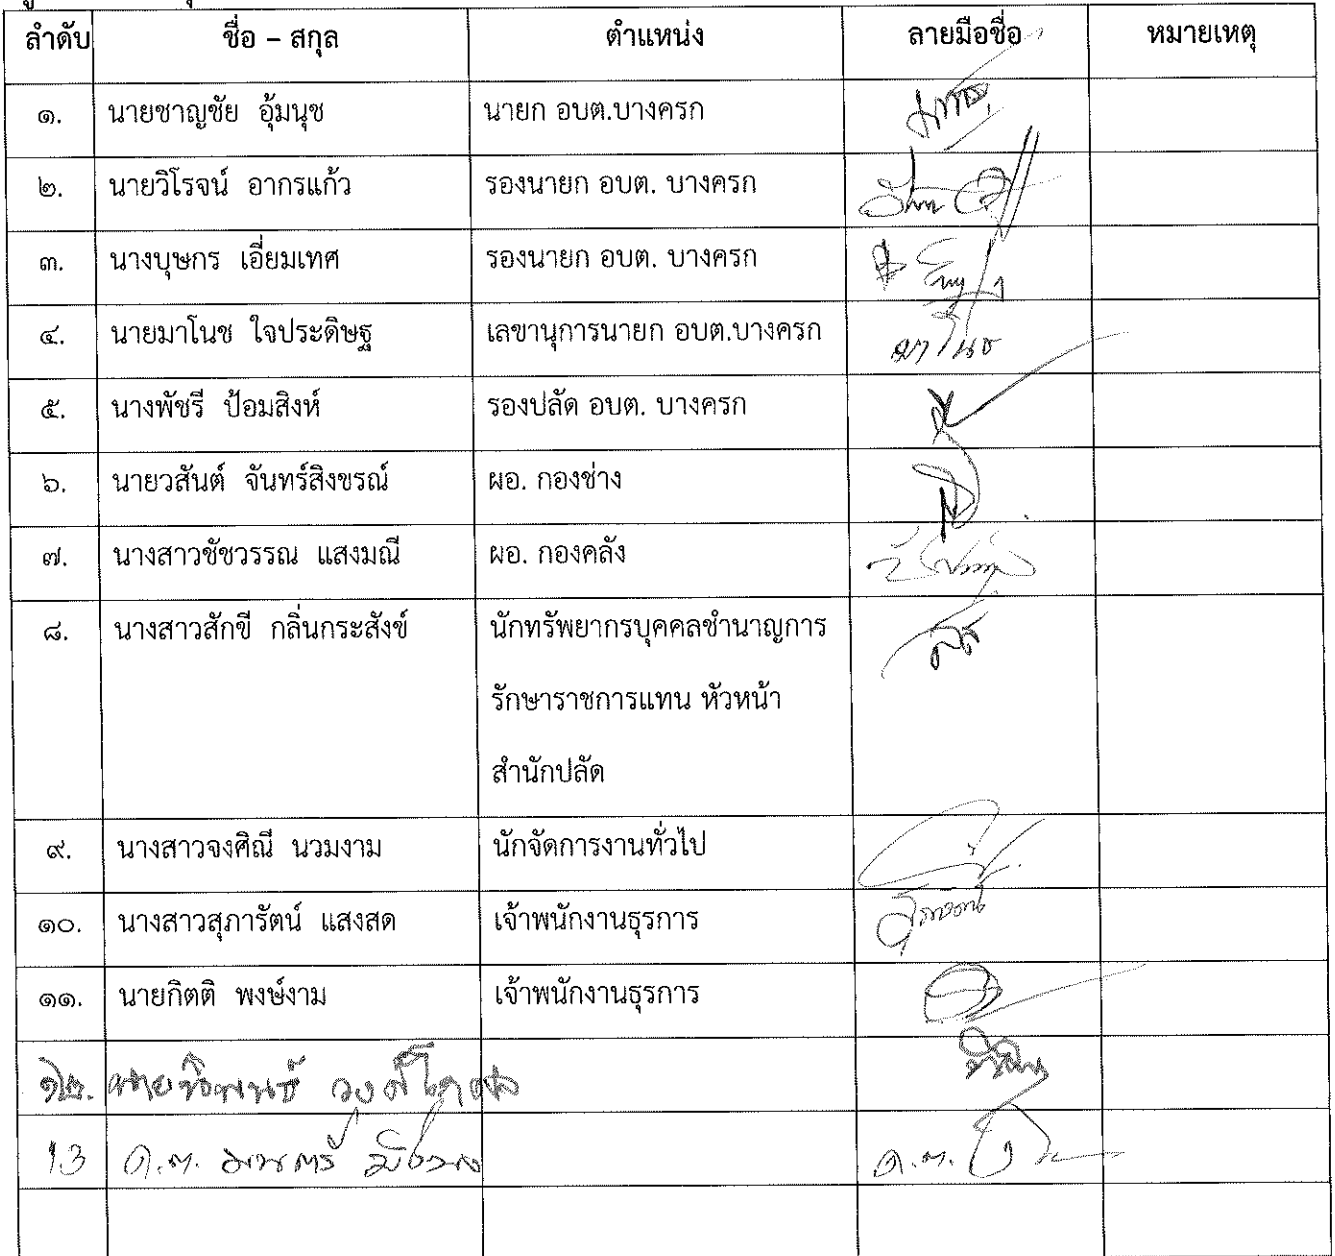 ลำดับ ชื่อ – สกุล ตำแหน่ง ลายมือชื่อ หมายเหตุ
๑. นายชาญชัย อุ้มนุช นายก อบต.บางครก
๒. นายวิโรจน์ อากรแก้ว รองนายก อบต. บางครก
๓. นางบุษกร เอี่ยมเทศ รองนายก อบต. บางครก
๔. นายมาโนช ใจประดิษฐ เลขานุการนายก อบต.บางครก มาโนช
๕. นางพัชรี ป้อมสิงห์ รองปลัด อบต. บางครก
๖. นายวสันต์ จันทร์สิงขรณ์ ผอ. กองช่าง
๗. นางสาวชัชวรรณ แสงมณี ผอ. กองคลัง
๘. นางสาวสักขี กลิ่นกระสังข์ นักทรัพยากรบุคคลชำนาญการ
รักษาราชการแทน หัวหน้า
สำนักปลัด
๙. นางสาวจงศิณี นวมงาม นักจัดการงานทั่วไป
๑๐. นางสาวสุภารัตน์ แสงสด เจ้าพนักงานธุรการ
๑๑. นายกิตติ พงษ์งาม เจ้าพนักงานธุรการ
๑๒. นาย
13 ด.ต. มนตรี ด.ต.